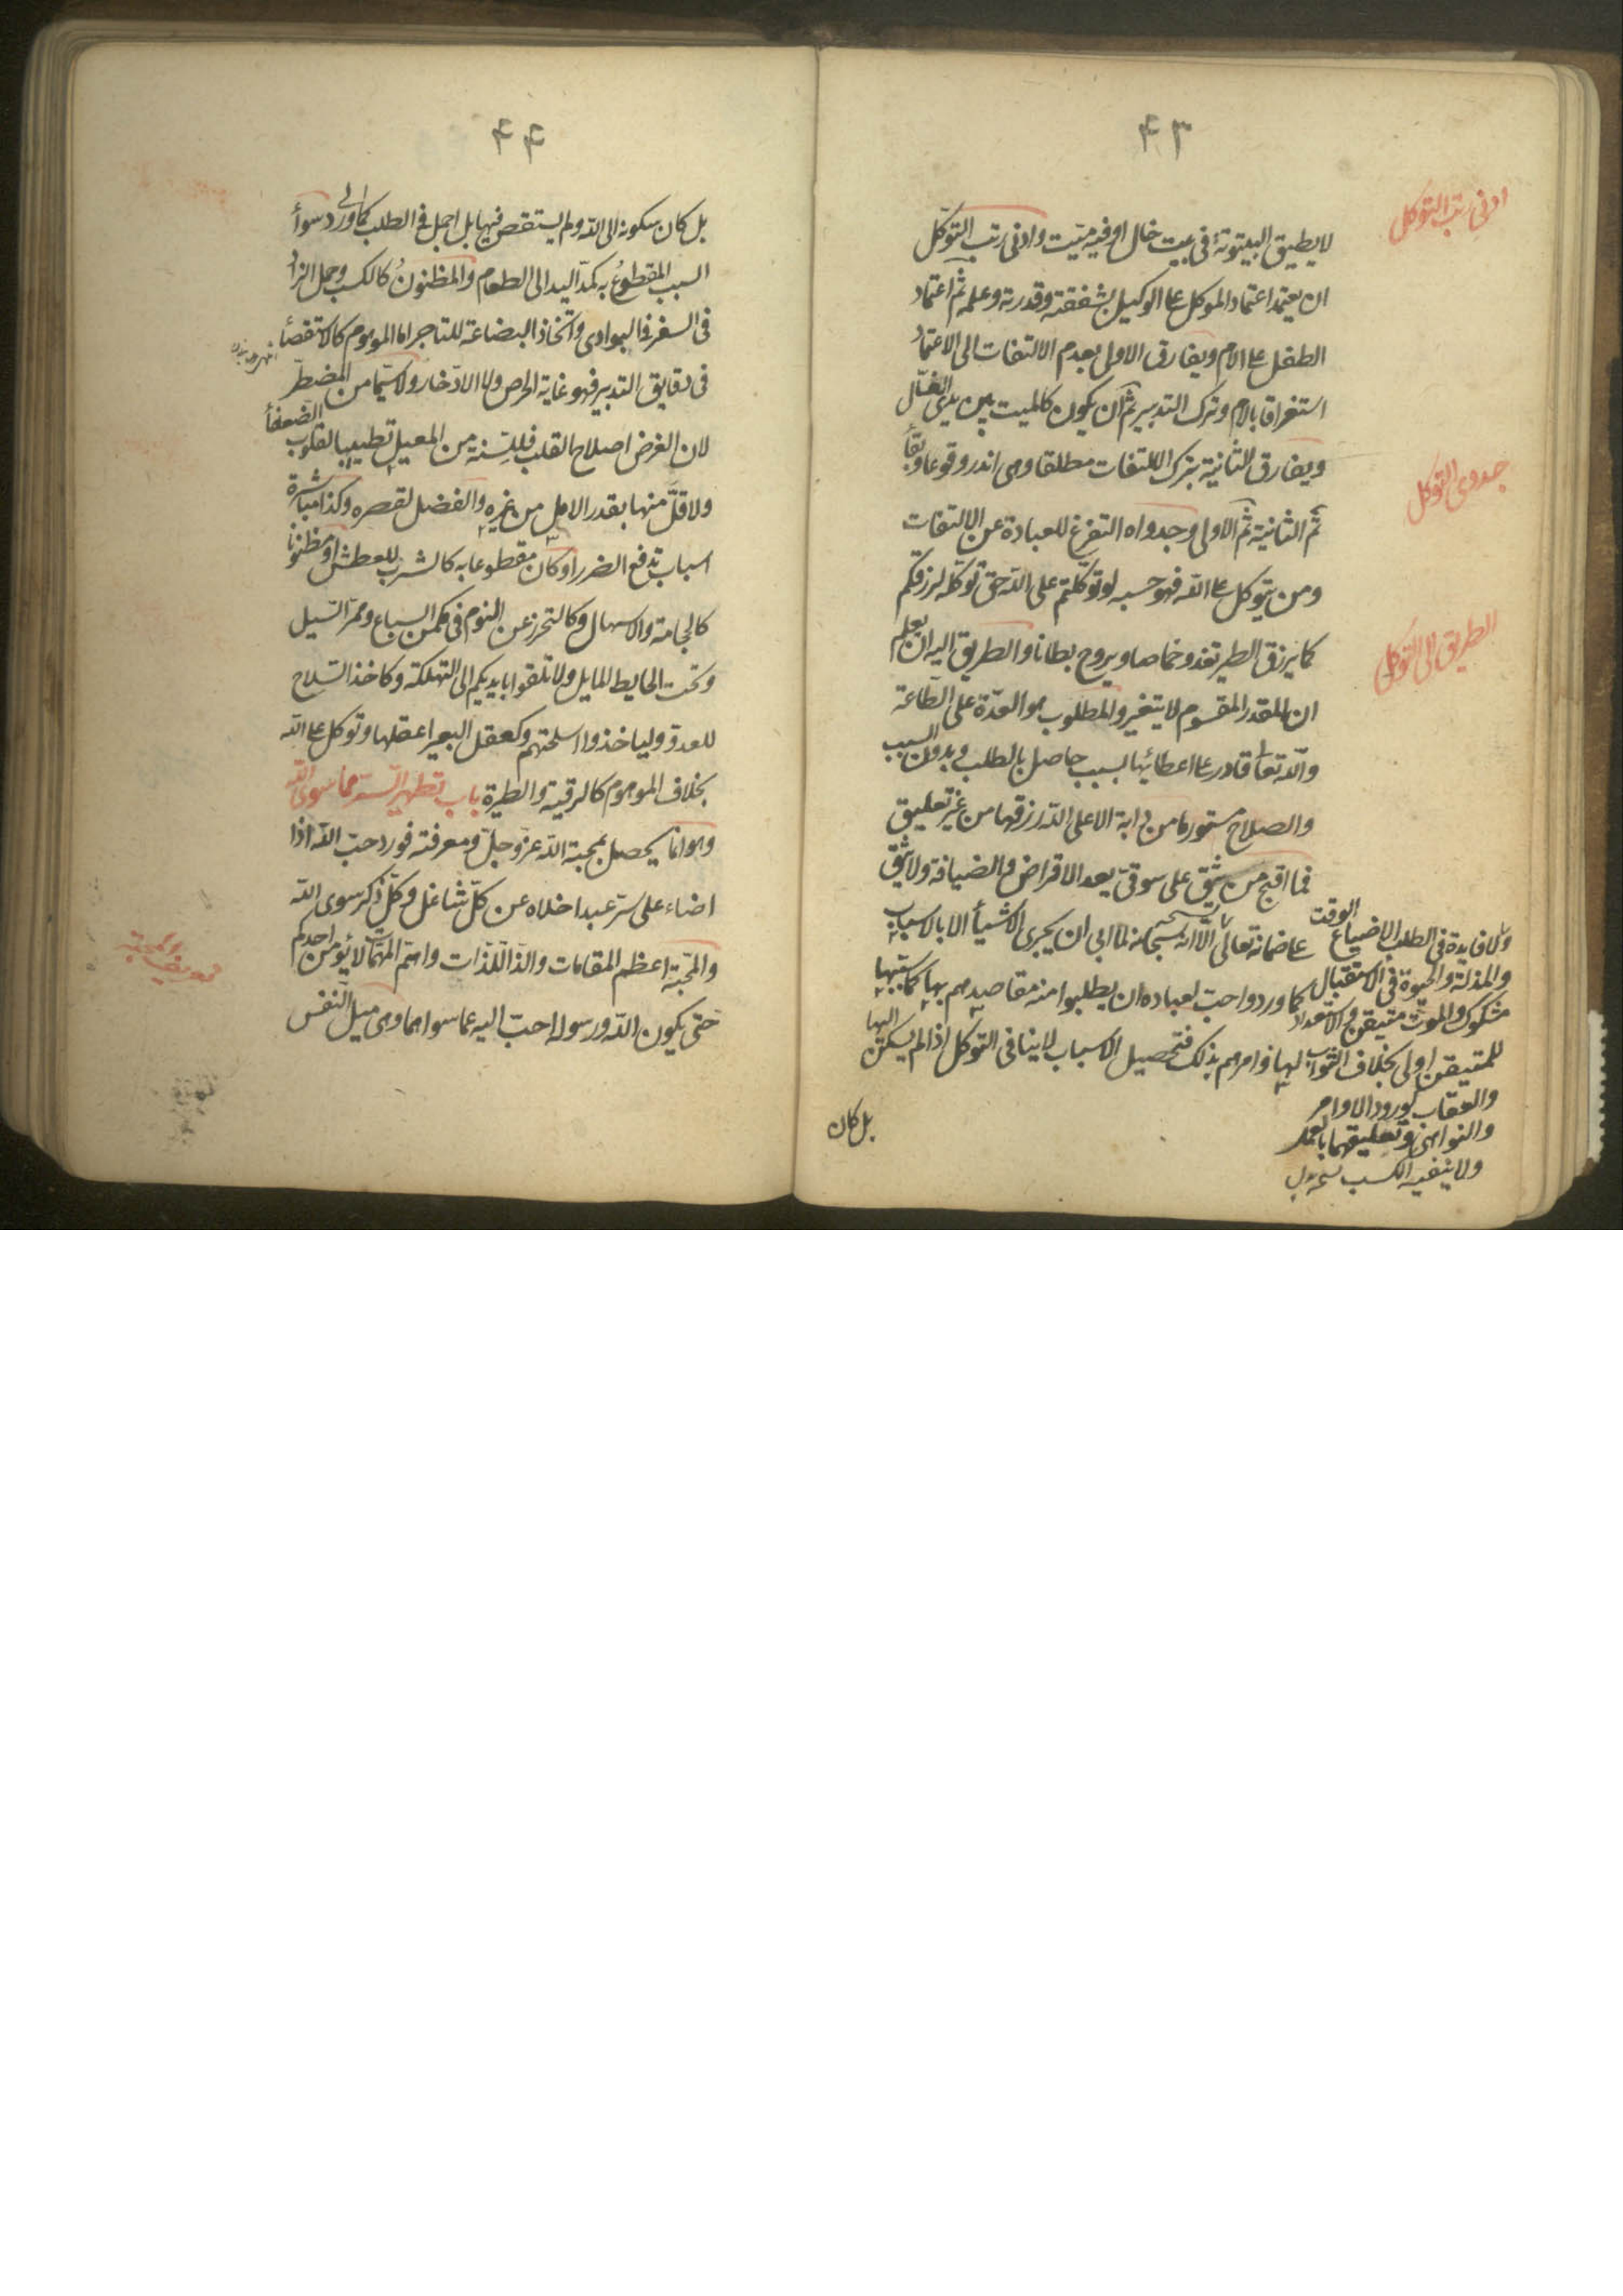 ۴۳
ادنى رتب التوكل
لا يطيق البيتوتة فى بيت خال او فيه ميّت وادنى رتب التوكّل
ان يعتمد اعتماد الموكل على الوكيل بشفقته وقدرته وعلمه ثم اعتماد
الطفل على الام ويفارق الاولى بعدم الالتفات الى الاعتماد
استغراقا بالام وترك التدبير ثم ان يكون كالميت بين يدى الغسّال
ويفارق الثانية بترك الالتفات مطلقا وهى اندر وقوعا وبقأ
جدوى التوكل
ثم الثانية ثم الاولى وجدواه التفرغ للعبادة عن الالتفات
ومن يتوكل على الله فهو حسبه لو توكلتم على الله حق توكله لرزقكم
الطريق الى التوكل
كما يرزق الطير تغدو خماصا ويروح بطانا والطريق اليه ان يعلم
ان المقدر المقسوم لا يتغير والمطلوب هو العدّة على الطّاعة
والله تعالى قادر على اعطائها بسبب حاصل بالطلب وبدون السبب
والصلاح مستورها من دابة الا على الله رزقها من غير تعليق
فما اقبح من يثق على سوقىّ يعد الاقراض والضيافة ولا يثق
على ضمانه تعالى الا انه سبحانه لما ابى ان يجرى الاشيأ الا بالاسباب
كما ورد واحب لعباده ان يطلبوا منه مقاصدهم بها كما سببها
لها وامرهم بذلك فتحصيل الاسباب لا ينافى التوكل اذا لم يسكن اليها
ولا فايدة فى الطلب الا ضياع الوقت
والمذلّة والحيوة فى الاستقبال
مشكوك والموت متيقن والاستعداد
للمتيقن اولى بخلاف الثواب
والعقاب لورود الاوامر
والنواهى وتعليقهما بالعمل
ولا ينفيه الكسب
بل كان
۴۴
بل كان سكونه الى الله ولم يستقص فيها بل اجمل فى الطلب كما ورد سوأ
السبب المقطوع به كمدّ اليد الى الطعام والمظنون كالكسب وحمل الزاد
فى السفر فى البوادى واتخاذ البضاعة للتاجر اما الموهوم كالاستقصأ
فى دقايق التدبير فهو غاية الحرص ولا الادّخار ولا سيّما من المضطرّ
لان الغرض اصلاح القلب فلسنة من المعيل تطييبا لقلوب الضعفأ
ولا قلّ منها بقدر الامل من غيره والفضل لقصره وكذا مباشرة
اسباب تدفع الضرر لو كان مقطوعا به كالشرب للعطش او مظنونا
كالحجامة والاسهال وكالتحرز عن النوم فى مكمن السباع وممرّ السّيل
وتحت الحايط المايل ولا تلقوا بايديكم الى التهلكة وكاخذ السّلاح
للعدو وليأخذوا اسلحتهم وكعقل البعير اعقلها وتوكل على الله
بخلاف الموهوم كالرقية والطيرة باب تطهير السّر عما سوى الله
وهو انّما يحصل بمحبة الله عزّ وجلّ ومعرفته فورد حبّ الله اذا
اضاء على سرّ عبد اخلاه عن كلّ شاغل وكلّ ذكر سوى الله
والمحبّة اعظم المقامات والذّ اللّذات واهم المهمّات لا يؤمن احدكم
حتى يكون الله ورسوله احبّ اليه عما سواهما وهى ميل النّفس